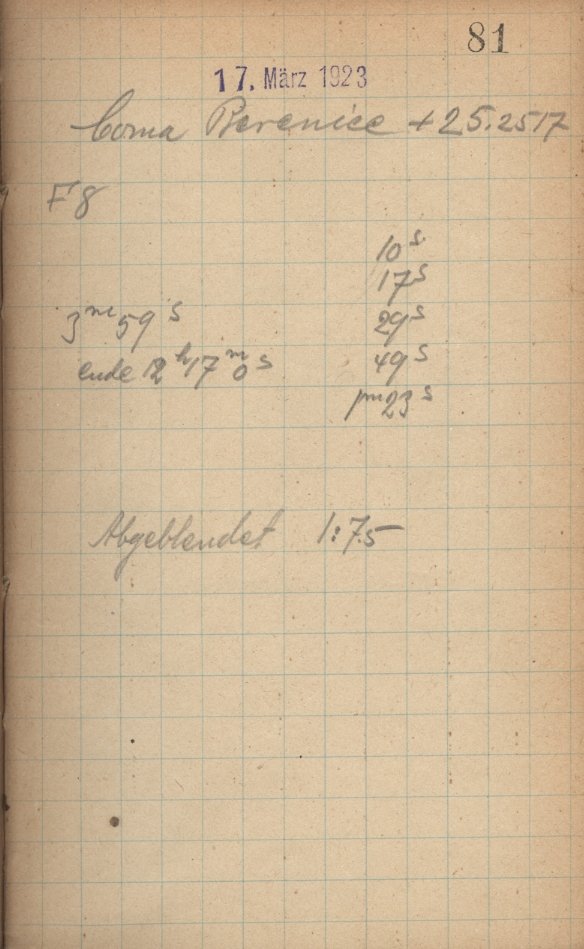 81
17. März 1923
Coma Berenice + 25.2517
F8
10 s
17 s
3 m 59 s 29 s
ende 12 h 17 m 0 s 49 s
1 m 23 s
Abgeblendet 1:7.5